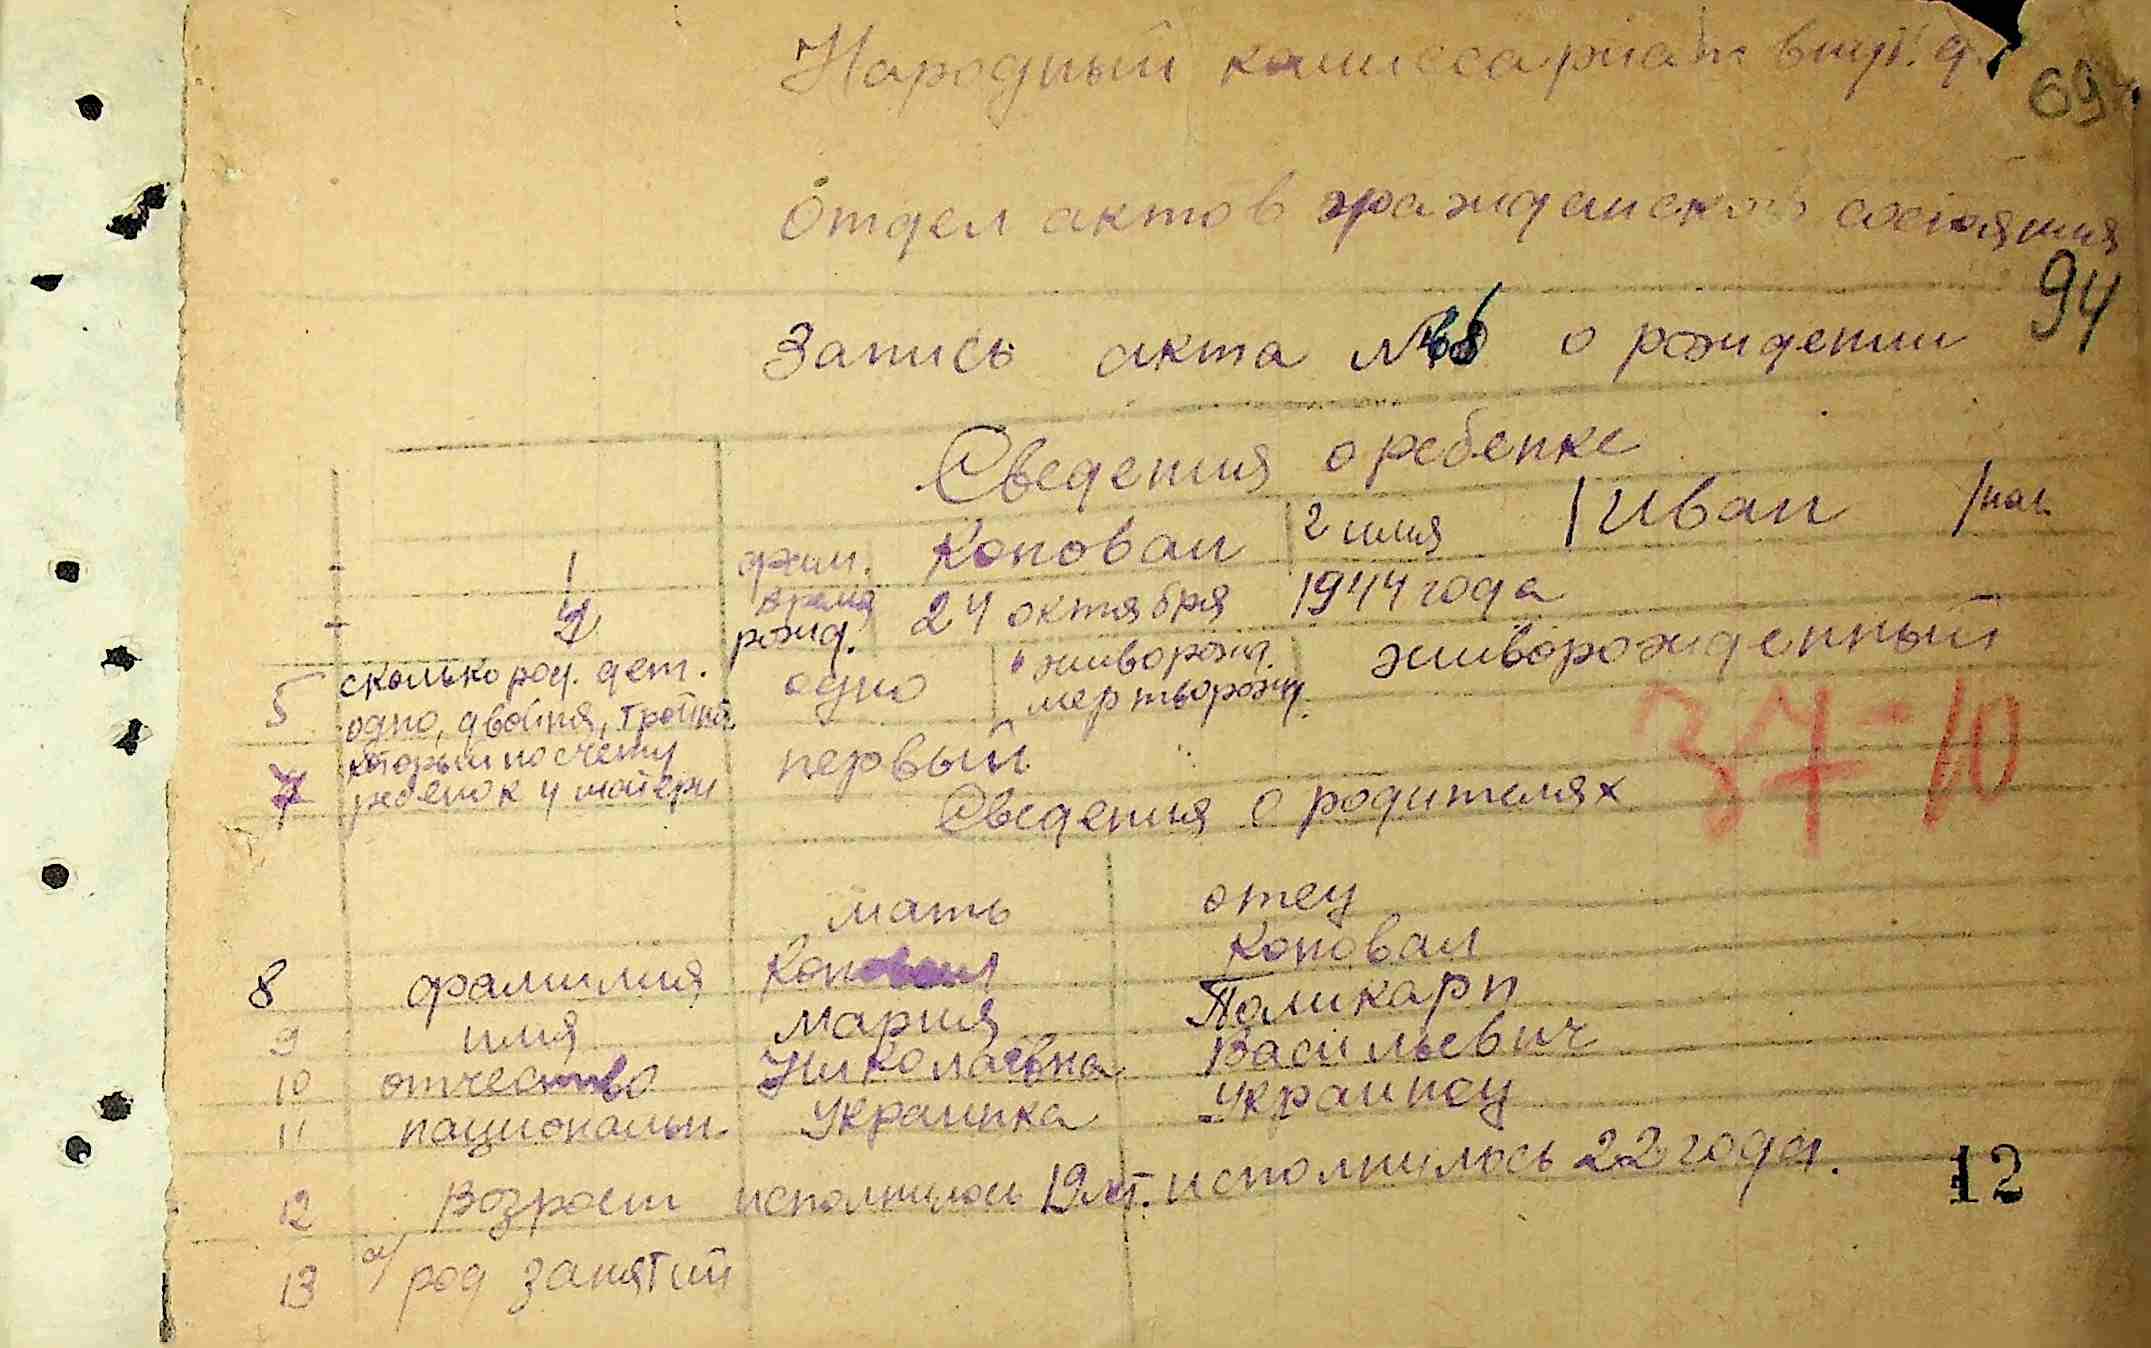 Народный комиссариат внут. д.
69
Отдел актов гражданского состояния
94
Запись акта № о рождении
Сведения о ребенке
1 фам. Коновал 2 имя Иван
4 время рожд. 24 октября 1944 года
5 сколько род. дет. одно, двойня, тройня одно 6 живорожд. мертворожд. живорожденный
7 который по счету ребенок у матери первый
37=10
Сведения о родителях
мать отец
8 фамилия Коновал Коновал
9 имя Мария Поликарп
10 отчество Николаевна Васильевич
11 национальн. Украинка Украинец
12 Возраст исполнилось 19 лет. исполнилось 22 года.
12
13 а/ род занятий